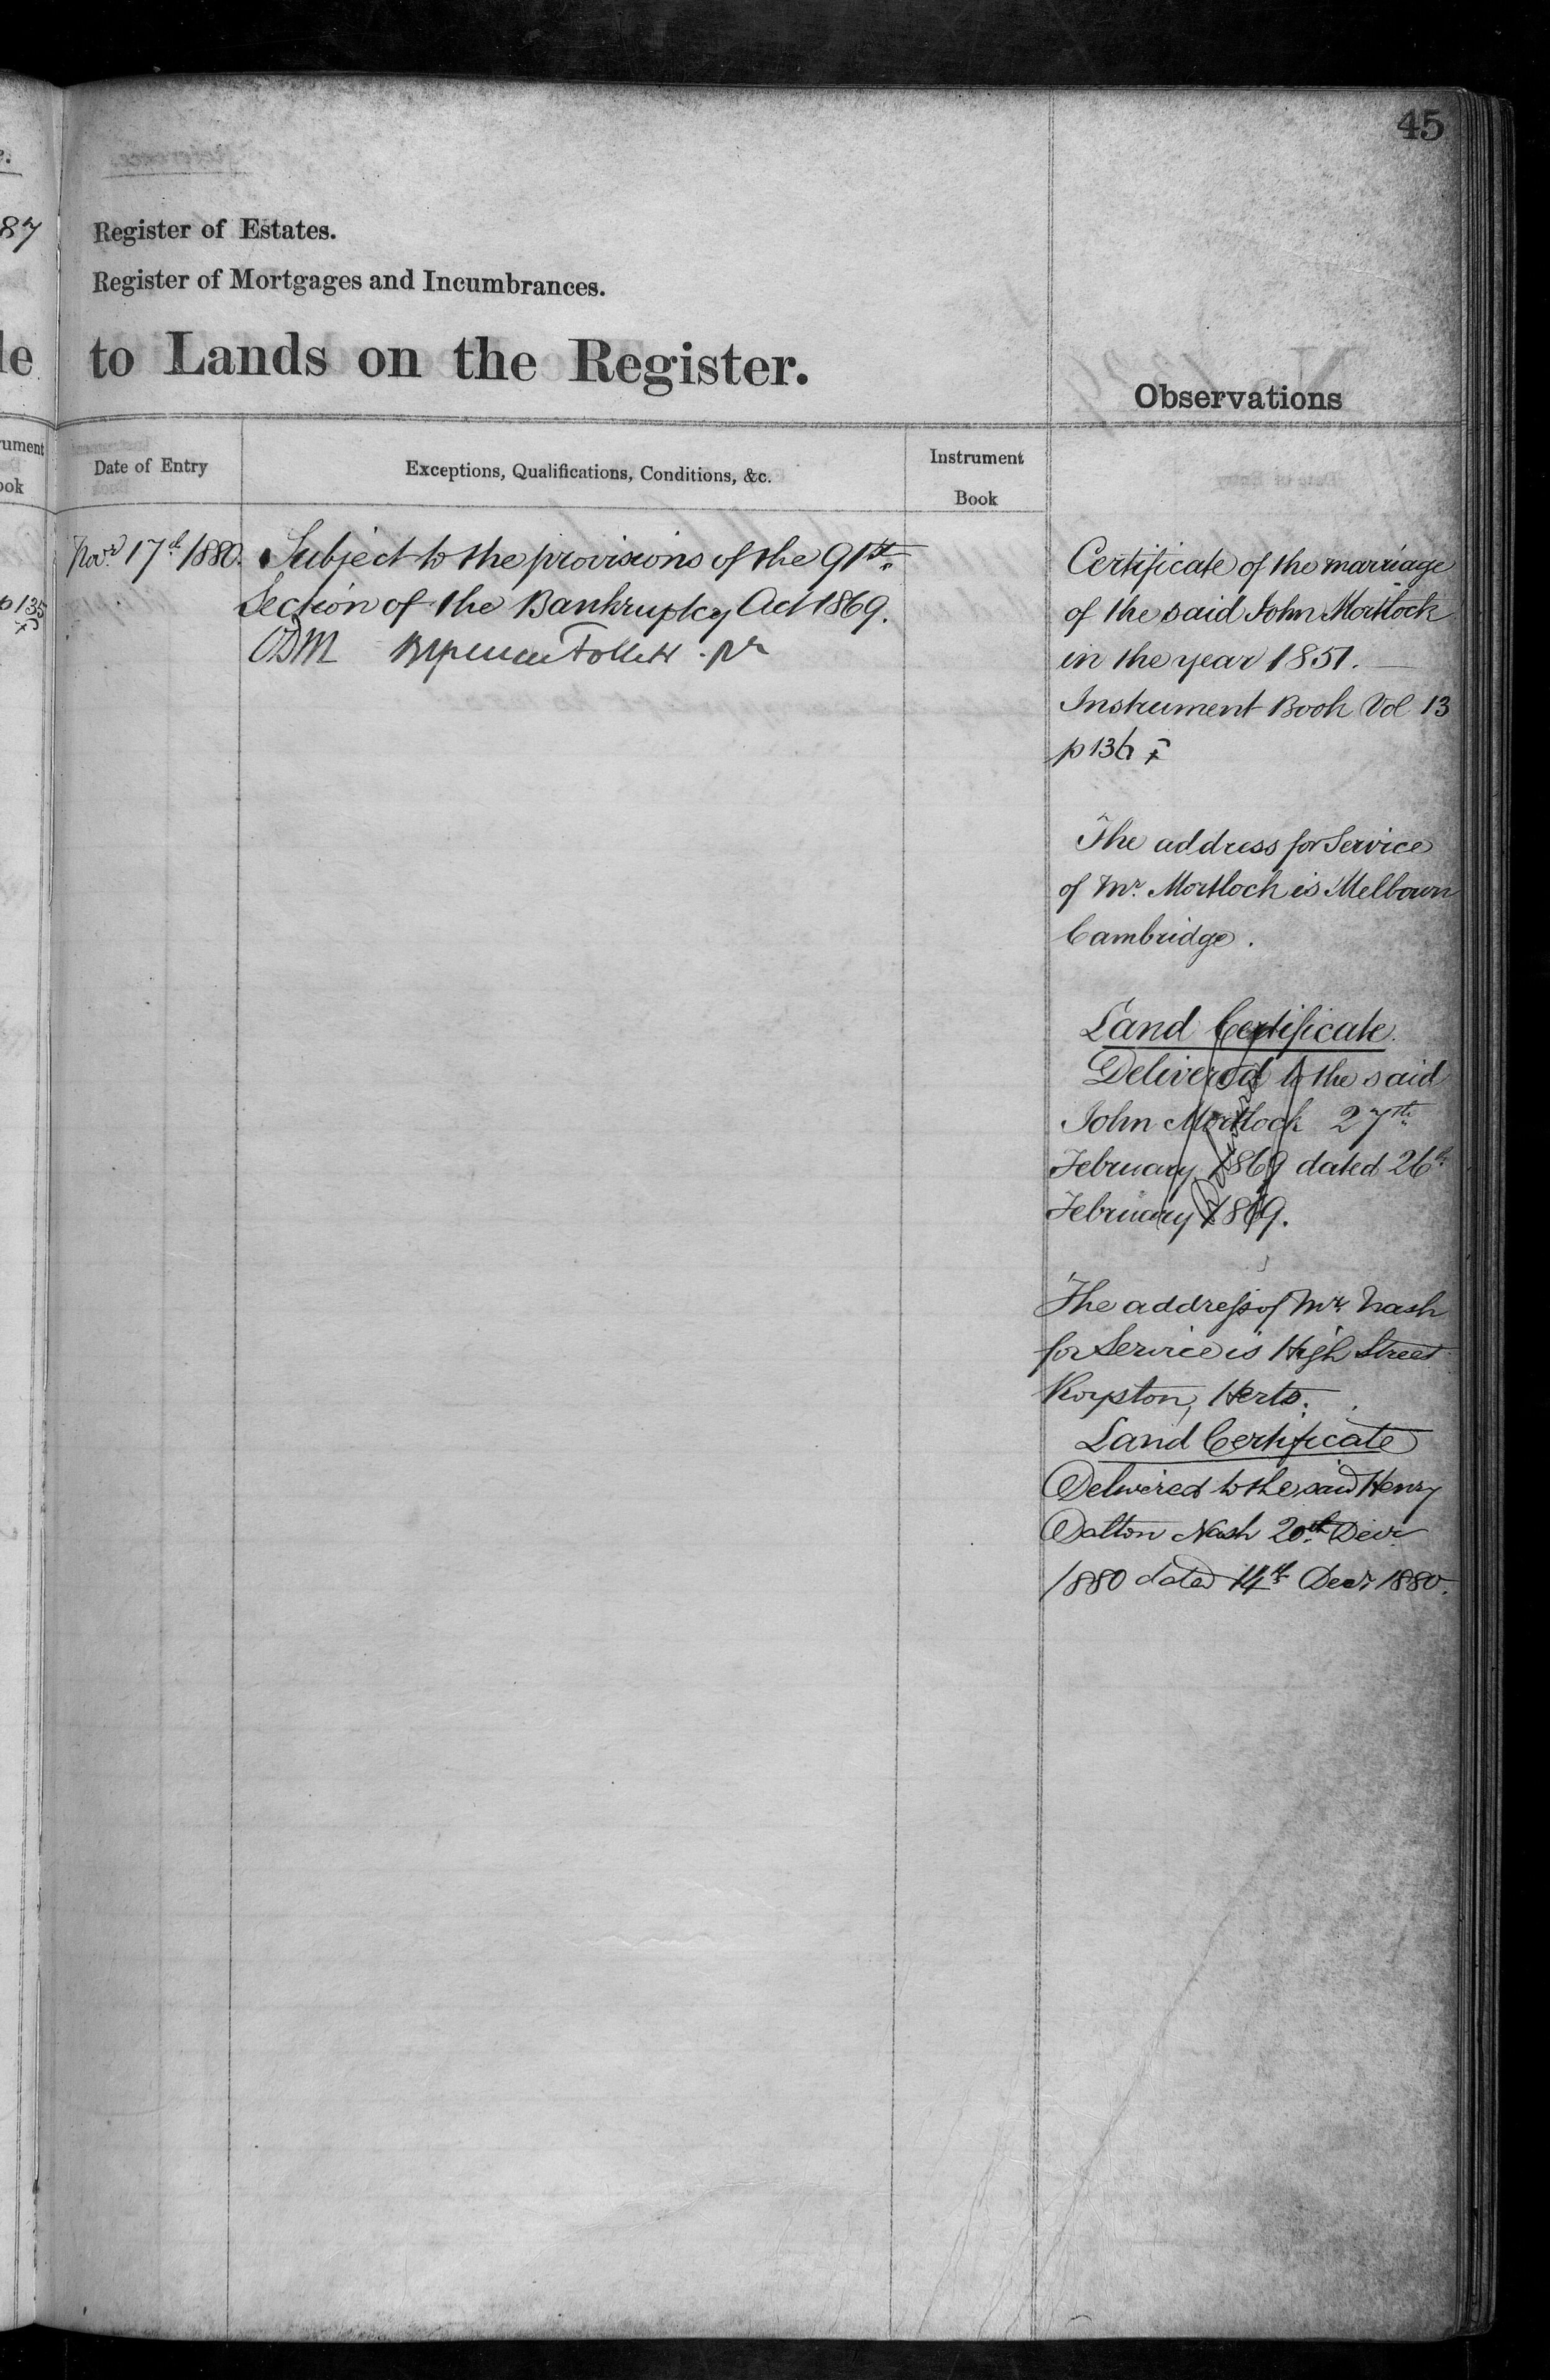 45
87
Register of Estates.
Register of Mortgages and Incumbrances.
le
to Lands on the Register.
Observations
Date of Entry
Exceptions, Qualifications, Conditions, &c.
Instrument
Book
Novr 17th 1880. Subject to the provisions of the 91st
Section of the Bankruptcy Act 1869.
p 135
Certificate of the marriage
of the said John Mortlock
in the year 1851.
Instrument Book Vol 13
p 136
The address for Service
of Mr. Mortlock is Melbourn
Cambridge.
Land Certificate.
Delivered to the said
John Mortlock 27th
February 1869 dated 26th
February 1869.
The address of Mr. Nash
for Service is High Street
Royston, Herts.
Land Certificate
Delivered to the said Henry
Dalton Nash 20th Decr
1880 dated 14th Decr 1880.